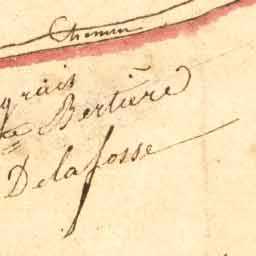 Chemin
grais
Bertiere
Delafosse